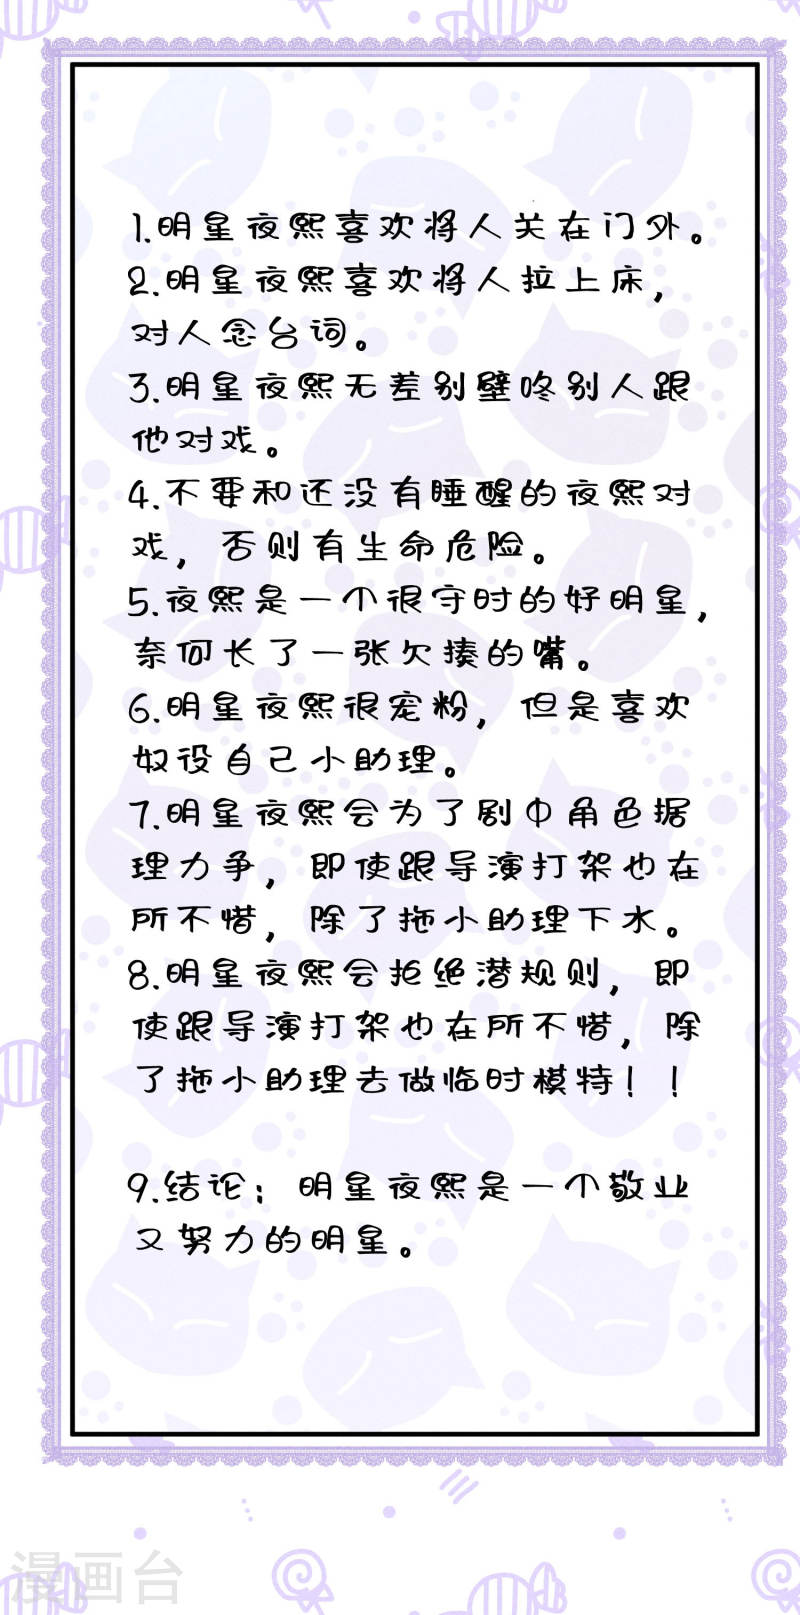 1.明星夜熙喜欢将人关在门外。
2.明星夜熙喜欢将人拉上床，
对人念台词。
3.明星夜熙无差别壁咚别人跟
他对戏。
4.不要和还没有睡醒的夜熙对
戏，否则有生命危险。
5.夜熙是一个很守时的好明星，
奈何长了一张欠揍的嘴。
6.明星夜熙很宠粉，但是喜欢
奴役自己小助理。
7.明星夜熙会为了剧中角色据
理力争，即使跟导演打架也在
所不惜，除了拖小助理下水。
8.明星夜熙会拒绝潜规则，即
使跟导演打架也在所不惜，除
了拖小助理去做临时模特！！
9.结论：明星夜熙是一个敬业
又努力的明星。
漫画台